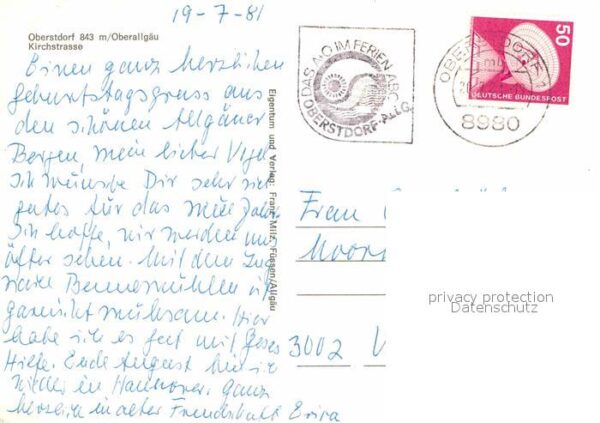 19-7-81
Oberstdorf 843 m/Oberallgäu
Kirchstrasse
Einen ganz herzlichen
Geburtstagsgruss aus
den schönen Allgäuer
Bergen, mein lieber
Ich wünsche Dir sehr viel
gutes für das neue Jahr.
Ich hoffe, wir werden uns
öfter sehen. Mit dem
nach Bennemühlen ist
garnicht mühsam. Hier
habe ich es fast mit
Hilfe. Ende August bin ich
wieder in Hannover. ganz
herzlich in alter Freundschaft Erica
Eigentum und Verlag: Franz Milz, Füssen/Allgäu
DAS NO IM FERIEN-ABC
OBERSTDORF-ALLG.
OBERSTDORF
8980
50
DEUTSCHE BUNDESPOST
Frau
3002
privacy protection
Datenschutz